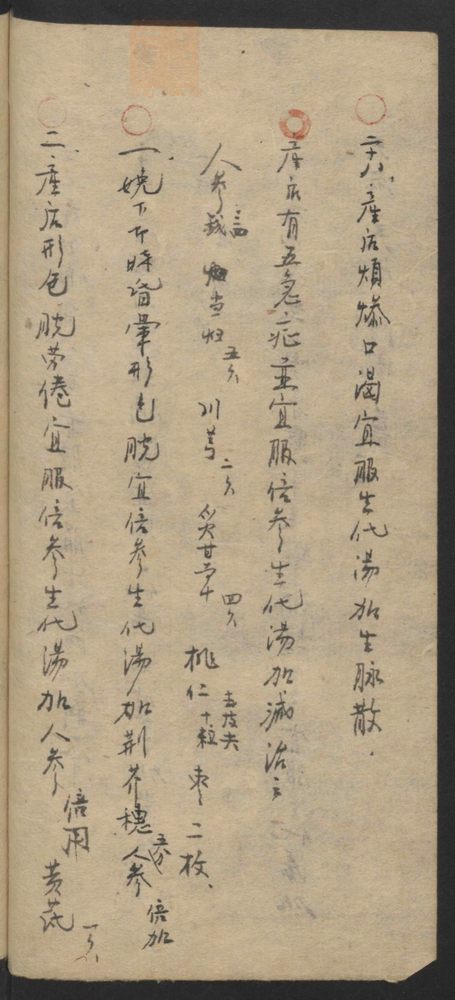 十六、產后煩燥口渴宜服生化湯加生脉散.
產后有五急症並宜服倍參生化湯加減治之
人參 當归 五分 川芎 二分 炙甘草 四分 桃仁 十粒 去皮尖 枣二枚、
一、娩下下時昏暈形色脱宜倍參生化湯加荆芥穗 人參 倍加
二、產后形色脱劳倦宜服倍參生化湯加人參 倍用 黄芪 一分